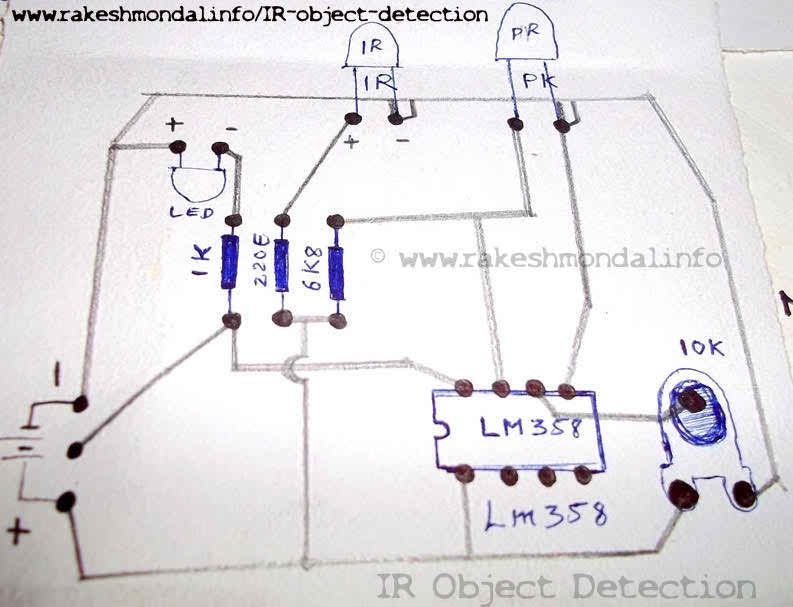 www.rakeshmondal.info/IR-object-detection
IR
PR
IR
PK
+
-
+
-
-
LED
1K
220E
6K8
© www.rakeshmondal.info
10K
-
LM358
+
Lm358
IR Object Detection